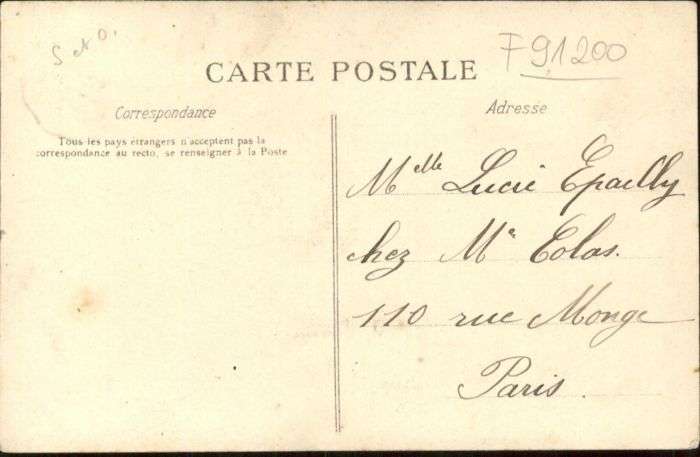 S et O.
F 91200
CARTE POSTALE
Correspondance
Adresse
Tous les pays étrangers n'acceptent pas la
correspondance au recto, se renseigner à la Poste
Melle Lucie Epailly
chez Me Colas.
110 rue Monge
Paris.